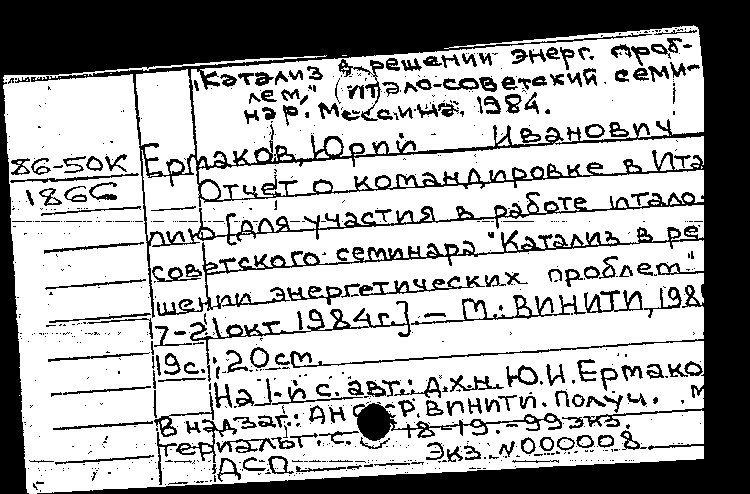 "Катализ в решении энерг. проб-
лем," итало-советский семи-
нар. Мессина, 1984.
Ермаков, Юрий Иванович
86-50К
186С
Отчет о командировке в Ита
лию [для участия в работе итало-
советского семинара "Катализ в ре
шении энергетических проблем"
7-21 окт. 1984г.]. — М.: ВИНИТИ, 198
19с.; 20см.
На 1-й с. авт.: д.х.н. Ю.И. Ермако
В надзаг.: АН СССР, ВИНИТИ. Получ. м
териалы: с. 18-19. - 99 экз.
ДСП. Экз. N000008.